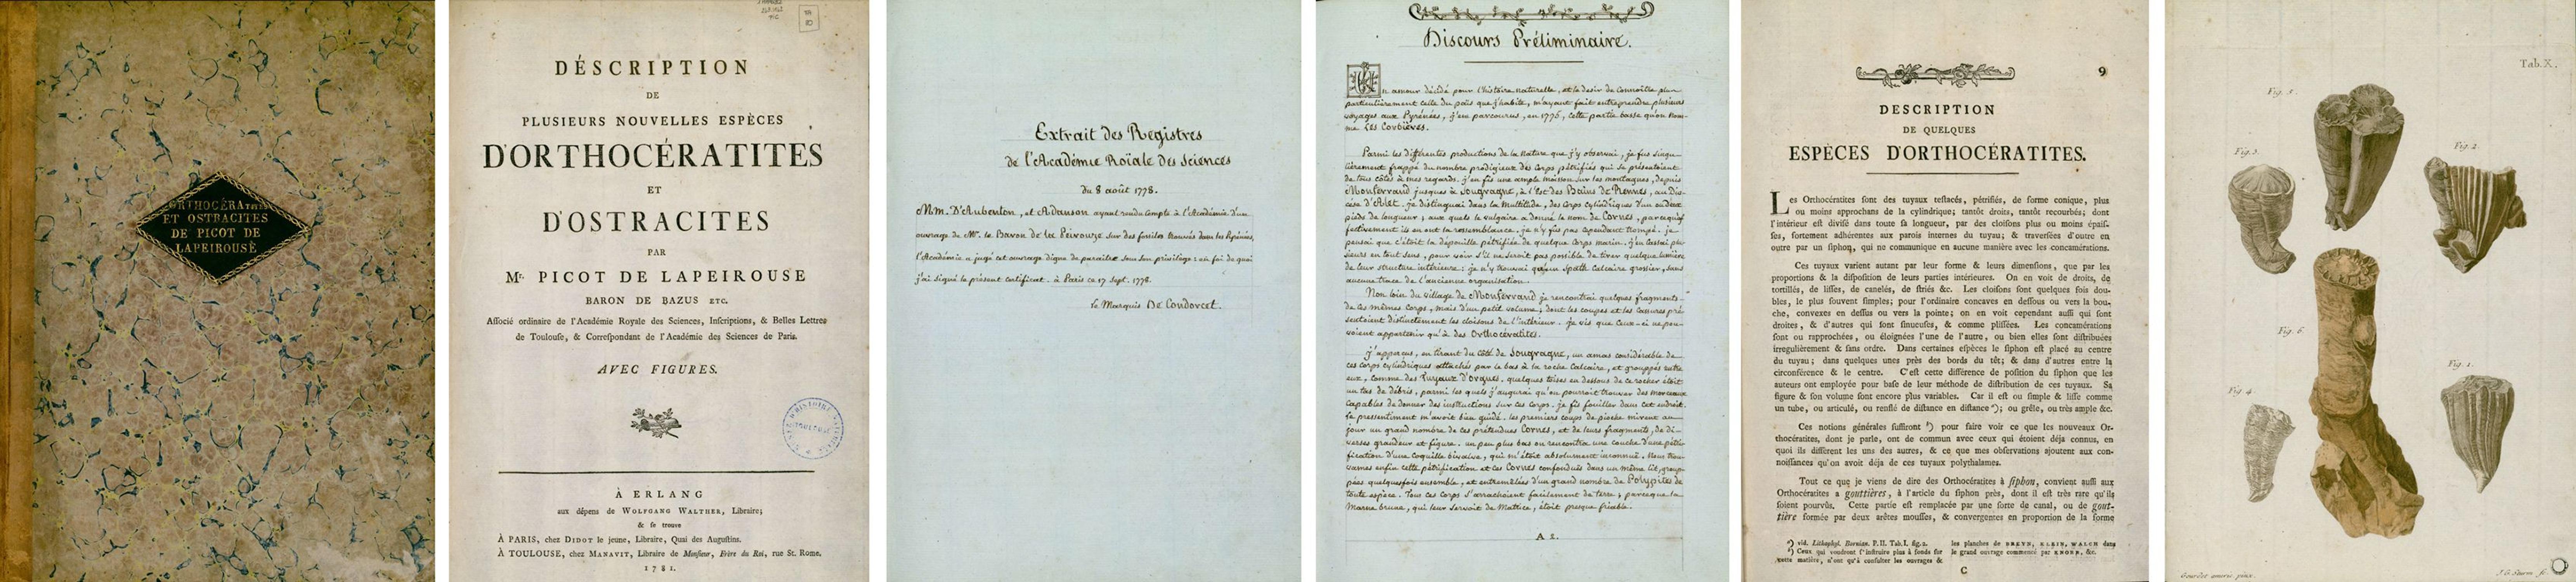 ORTHOCÉRATITES
ET OSTRACITES
DE PICOT DE
LAPEIROUSE
DÉSCRIPTION
DE
PLUSIEURS NOUVELLES ESPÈCES
D'ORTHOCÉRATITES
ET
D'OSTRACITES
PAR
Mr. PICOT DE LAPEIROUSE
BARON DE BAZUS ETC.
Aſſocié ordinaire de l'Académie Royale des Sciences, Inſcriptions, & Belles Lettres
de Toulouſe, & Correſpondant de l'Académie des Sciences de Paris.
AVEC FIGURES.
À ERLANG
aux dépens de WOLFGANG WALTHER, Libraire;
& ſe trouve
À PARIS, chez DIDOT le jeune, Libraire, Quai des Auguſtins.
À TOULOUSE, chez MANAVIT, Libraire de Monſieur, Frère du Roi, rue St. Rome.
1781.
Extrait des Registres
de l'Académie Roïale des Sciences
du 8 août 1778.
Mm. D'Aubenton, et Adanson ayant rendu Compte à l'Académie d'un
ouvrage de Mr. le Baron de la Peirouze sur des fossiles trouvés dans les Pyrénées,
l'Académie a jugé cet ouvrage digne de paraitre sous son privilège: en foi de quoi
j'ai signé le présent certificat. à Paris ce 17 sept. 1778.
le Marquis De Condorcet.
Discours Préliminaire.
Un amour décidé pour l'histoire naturelle, et le desir de Connoître plus
particulierement celle du païs que j'habite, m'ayant fait entreprendre plusieurs
voyages aux Pyrénées, j'en parcourus, en 1775, cette partie basse qu'on nom-
me les Corbières.
Parmi les différentes productions de la Nature que j'y observai, je fus singu-
lièrement frappé du nombre prodigieux des Corps pétrifiés qui se présentoient
de tous côtés à mes regards. j'en fis une ample moisson sur les montagnes, depuis
Monferrand jusques à Sougragne, à l'Est des Bains de Rennes, au Dio-
cèse d'Alet. je distinguai dans la multitude, des Corps cylindriques d'un ou deux
pieds de longueur; aux quels le vulgaire a donné le nom de Cornes, parcequ'ef
fectivement ils en ont la ressemblance. je n'y fus pas cependant trompé. je
pensai que c'étoit la dépouille pétrifiée de quelque Corps marin. j'en Cassai plu-
sieurs en tout sens, pour voir s'il ne seroit pas possible de tirer quelque lumière
de leur structure intérieure: je n'y trouvai qu'un Spath Calcaire grossier, sans
aucune trace de l'ancienne organisation.
Non loin du village de Monferrand je rencontrai quelques fragments
de ces mêmes Corps, mais d'un petit volume; dont les coupes et les cassures pré
sentoient distinctement les cloisons de l'intérieur. je vis que Ceux-ci ne pou-
voient appartenir qu'à des Orthocératites.
j'apperçus, en tirant du côté de Sougragne, un amas considérable de
ces corps cylindriques attachés par le bas à la roche Calcaire, et grouppés entre
eux, comme des Tuyaux d'orgues. quelques toises en dessous de ce rocher étoit
un tas de débris, parmi les quels j'augurai qu'on pourroit trouver des morceaux
Capables de donner des instructions sur ces Corps. je fis fouiller dans cet endroit.
le pressentiment m'avoit bien guidé. les premiers coups de pioche mirent au
jour un grand nombre de ces prétendues Cornes, et de leurs fragments, de di-
verses grandeur et figure. un peu plus bas on rencontra une couche d'une pétri-
fication d'une Coquille bivalve, qui m'étoit absolument inconnuë. Nous trou-
vames enfin cette pétrification et ces Cornes confondues dans un même lit, group-
pées quelquefois ensemble, et entremêlées d'un grand nombre de Polypites de
toute espèce. Tous ces Corps s'arrachoient facilement de terre; parceque la
Marne brune, qui leur servoit de Matrice, étoit presque friable.
A 2.
9
DESCRIPTION
DE QUELQUES
ESPÈCES D'ORTHOCÉRATITES.
Les Orthocératites ſont des tuyaux teſtacés, pétrifiés, de forme conique, plus
ou moins approchans de la cylindrique; tantôt droits, tantôt recourbés; dont
l'intérieur eſt diviſé dans toute ſa longueur, par des cloiſons plus ou moins épaiſ-
ſes, fortement adhérentes aux parois internes du tuyau; & traverſées d'outre en
outre par un ſiphon, qui ne communique en aucune manière avec les concamérations.
Ces tuyaux varient autant par leur forme & leurs dimenſions, que par les
proportions & la diſpoſition de leurs parties intérieures. On en voit de droits, de
tortillés, de liſſes, de canelés, de ſtriés &c. Les cloiſons ſont quelques fois dou-
bles, le plus ſouvent ſimples; pour l'ordinaire concaves en deſſous ou vers la bou-
che, convexes en deſſus ou vers la pointe; on en voit cependant auſſi qui ſont
droites, & d'autres qui ſont ſinueuſes, & comme pliſſées. Les concamérations
ſont ou rapprochées, ou éloignées l'une de l'autre, ou bien elles ſont diſtribuées
irregulièrement & ſans ordre. Dans certaines eſpèces le ſiphon eſt placé au centre
du tuyau; dans quelques unes près des bords du têt; & dans d'autres entre la
circonférence & le centre. C'eſt cette différence de poſition du ſiphon que les
auteurs ont employée pour baſe de leur méthode de diſtribution de ces tuyaux. Sa
figure & ſon volume ſont encore plus variables. Car il eſt ou ſimple & liſſe comme
un tube, ou articulé, ou renflé de diſtance en diſtance *); ou grêle, ou très ample &c.
Ces notions générales ſuffiront *) pour faire voir ce que les nouveaux Or-
thocératites, dont je parle, ont de commun avec ceux qui étoient déja connus, en
quoi ils diffèrent les uns des autres, & ce que mes obſervations ajoutent aux con-
noiſſances qu'on avoit déja de ces tuyaux polythalames.
Tout ce que je viens de dire des Orthocératites à ſiphon, convient auſſi aux
Orthocératites a gouttières, à l'article du ſiphon près, dont il eſt très rare qu'ils
ſoient pourvûs. Cette partie eſt remplacée par une ſorte de canal, ou de gout-
tière formée par deux arêtes mouſſes, & convergentes en proportion de la forme
vid. Lithophyl. Bornian. P. II. Tab. I. fig. 2.
Ceux qui voudront s'inſtruire plus à fonds ſur
cette matière, n'ont qu'à conſulter les ouvrages &
les planches de BREYN, KLEIN, WALCH dans
le grand ouvrage commencé par KNORR, &c.
C
Tab. X.
Fig. 5.
Fig. 3.
Fig. 2.
Fig. 6.
Fig. 1.
Fig. 4
J. G. Sturm sc.